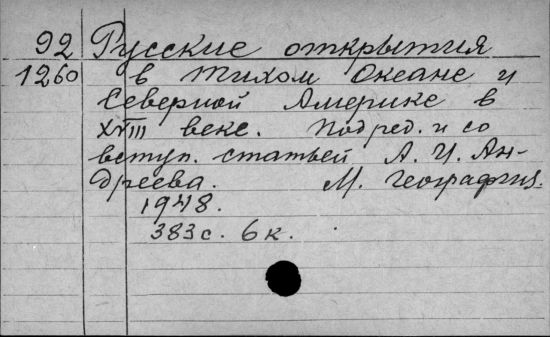 92 Русские открытия
1260 в Тихом Океане и
Северной Америке в
XVIII веке. Под ред. и со
вступ. статьей А. И. Ан-
дреева. М. География.
1948.
383 с. 6 к.